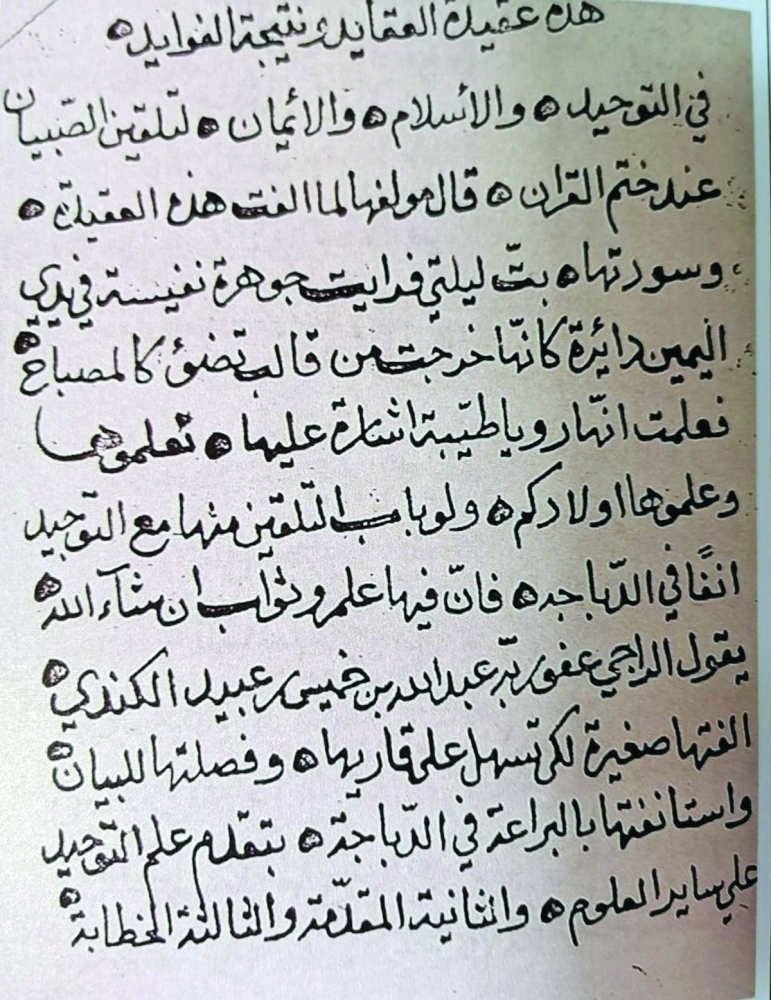 هذه عقيدة العقايد ونتيجة الفوايد
في التوحيد والأسلام والأئمان لتلقين الصّبيان
عند ختم القران قال مولفها لما الفت هذه العقيدة
وسورتها بتّ ليلتي فرايت جوهرة نفيسة في يدي
اليمين دائرة كانّها خرجت من قالب تضئ كالمصباح
فعلمت انّها رويا طيّبة اشارة عليها تعلموها
وعلموها اولادكم ولو باب التلقين منها مع التوحيد
انفًا في الدّباجه فانّ فيها علم وثواب ان شآء الله
يقول الراجي عفو ربّه عبدالله بن خميس بن عبيد الكندي
الفتها صغيرة لكي تسهل على قاريها وفصلتها للبيان
واستانفتها بالبراعة في الدّباجّة بتقدم علم التوحيد
على ساير العلوم والثانية المقدّمة والثالثة الخطابة